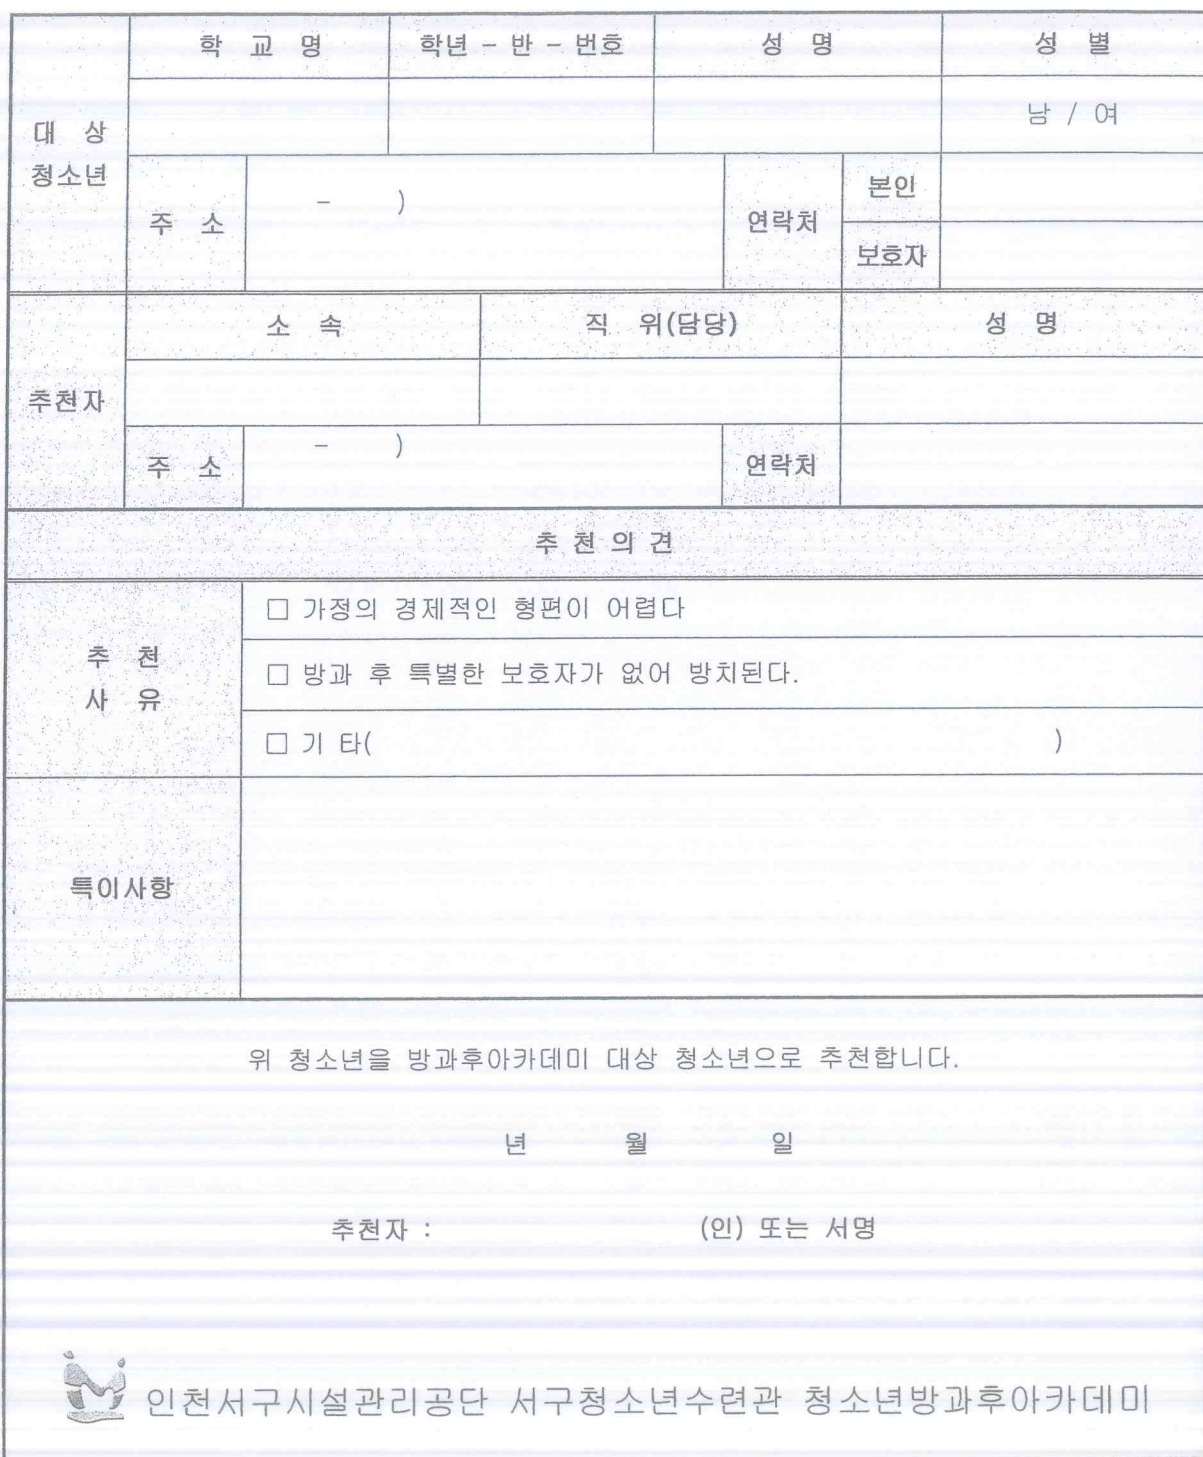 학 교 명 학년 - 반 - 번호 성 명 성 별
대 상
청소년
남 / 여
주 소 - ) 연락처 본인
보호자
소 속 직 위(담당) 성 명
추천자
주 소 - ) 연락처
추 천 의 견
추 천
사 유
□ 가정의 경제적인 형편이 어렵다
□ 방과 후 특별한 보호자가 없어 방치된다.
□ 기 타( )
특이사항
위 청소년을 방과후아카데미 대상 청소년으로 추천합니다.
년 월 일
추천자 : (인) 또는 서명
인천서구시설관리공단 서구청소년수련관 청소년방과후아카데미